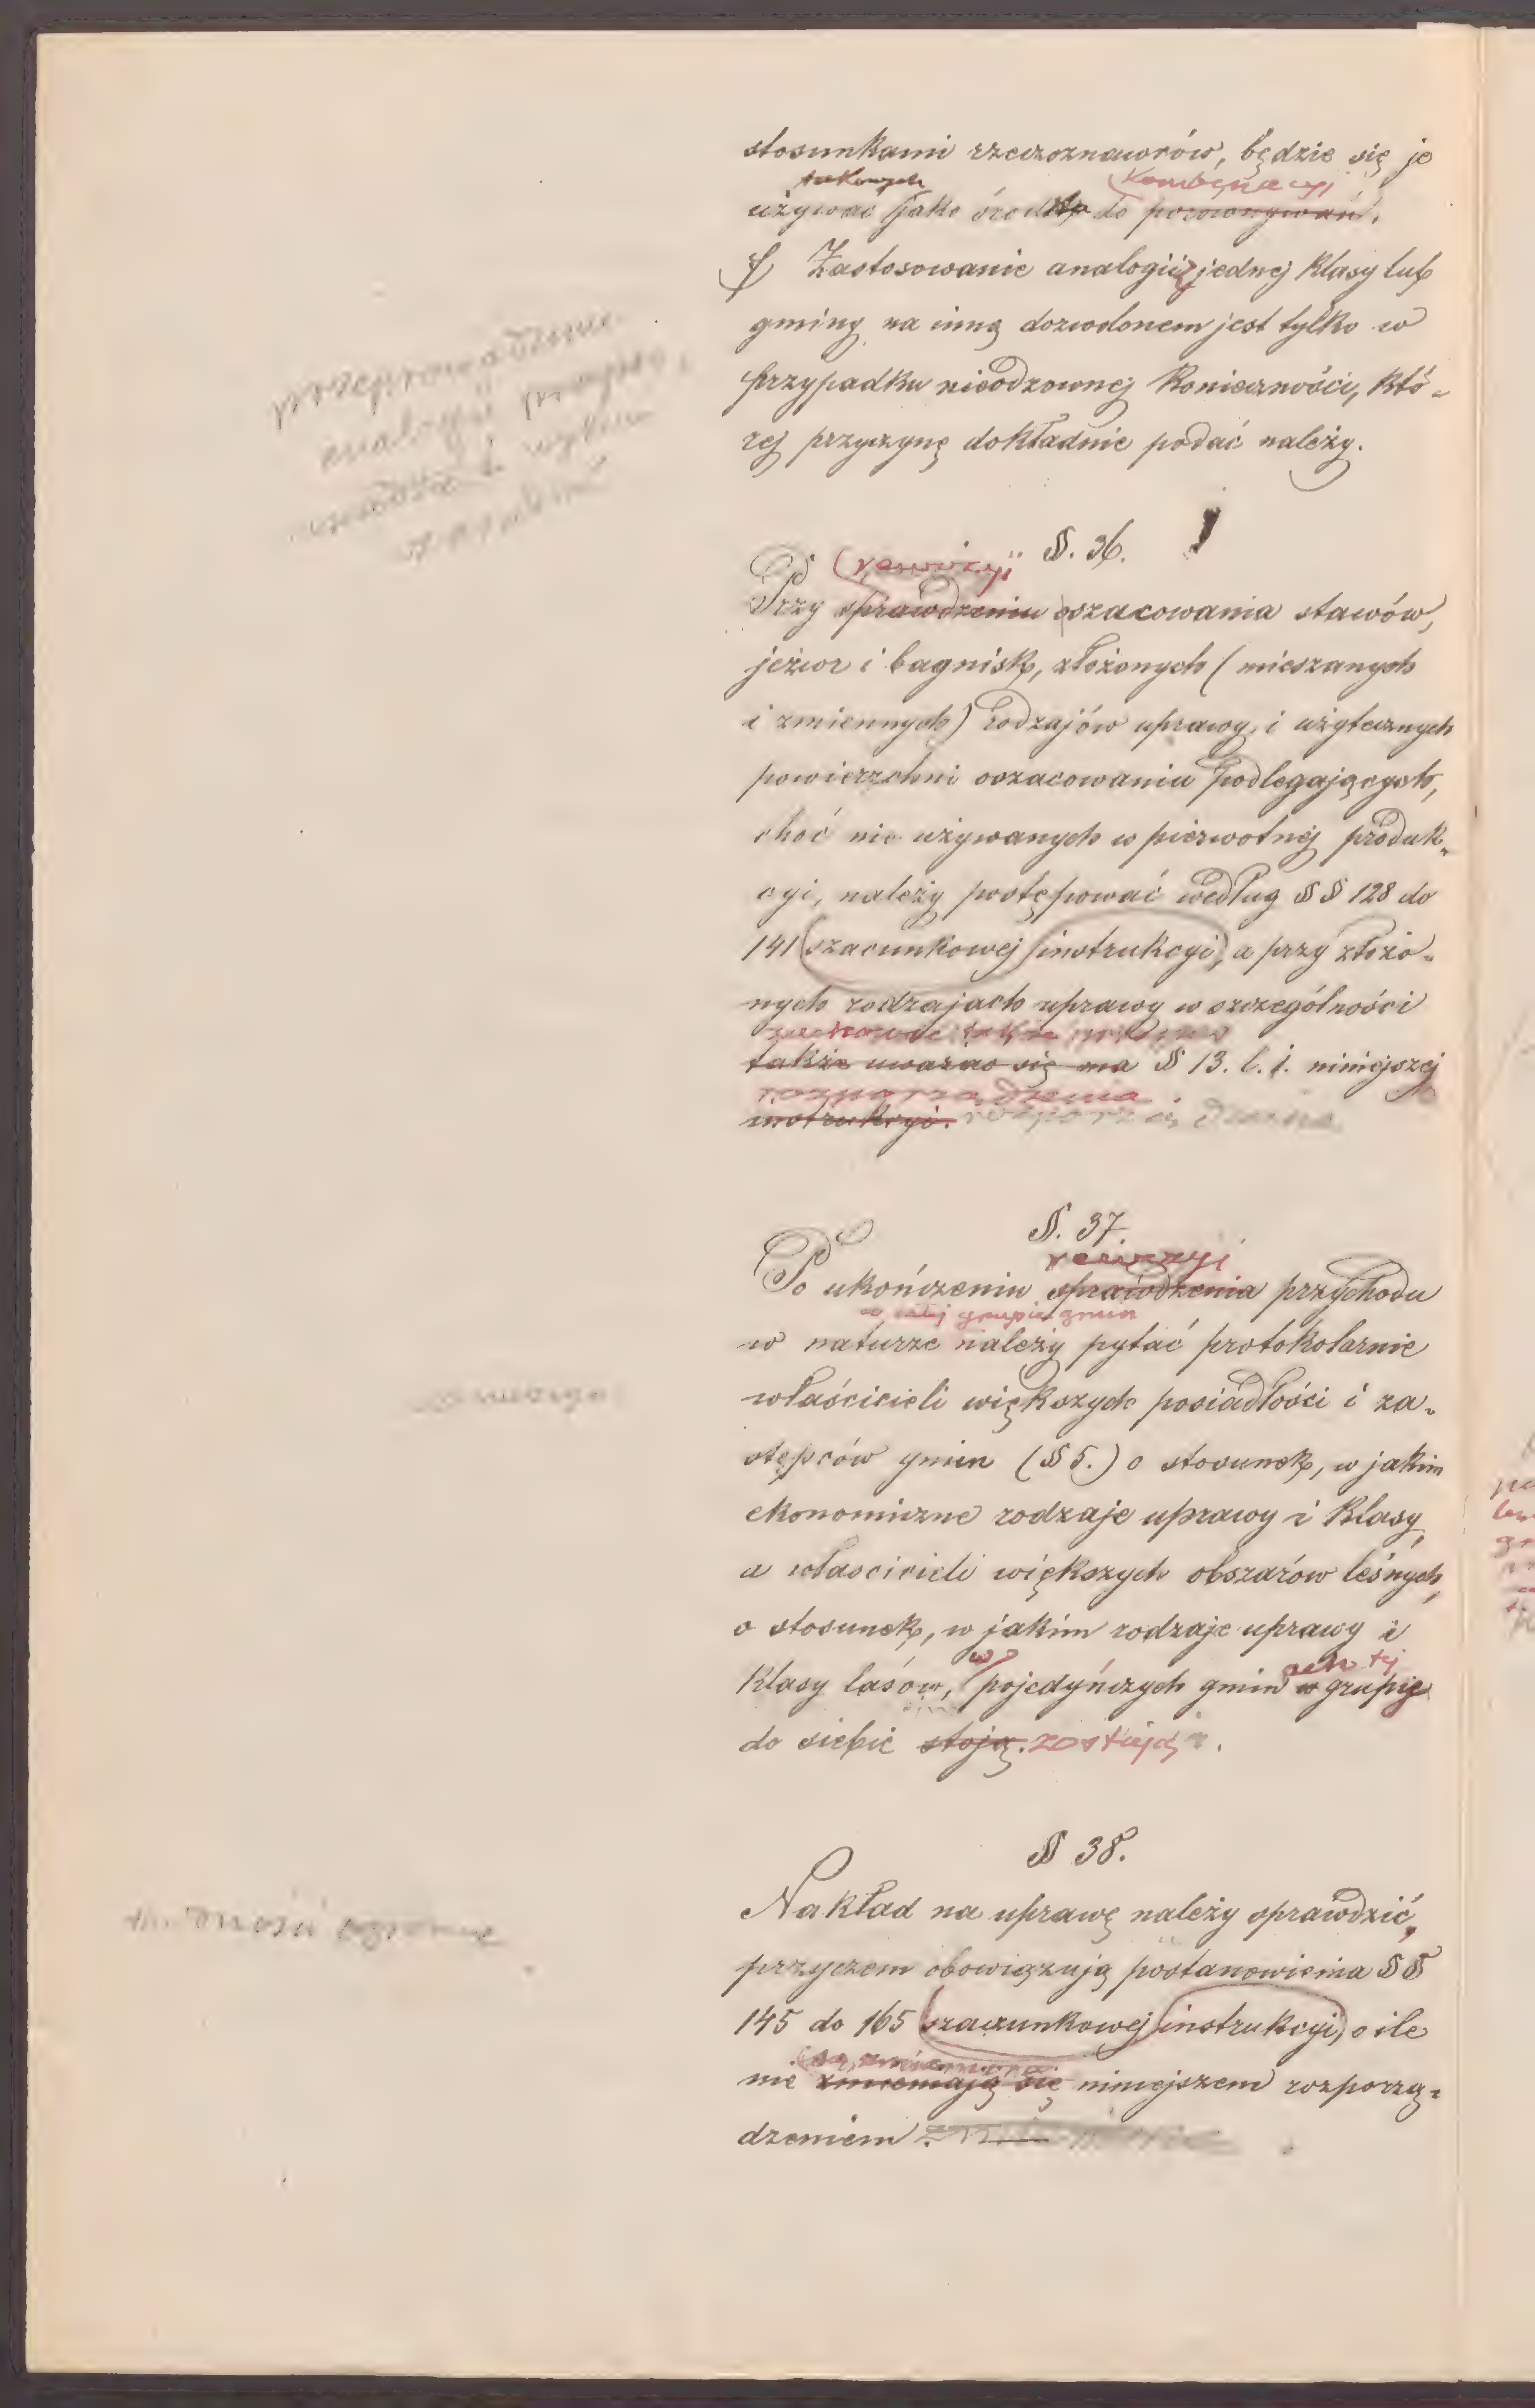 stosunkami rzeczoznawców, będzie się je
takowych kombinacyi
używać jako środka do porównywań.
f) Zastosowanie analogii jednej klasy lub
gminy na inną dozwolonem jest tylko w
przypadku nieodzownej konieczności, któ-
rej przyczynę dokładnie podać należy.
przeprowadzenie
analogii
§. 36.
rewizyi
Przy sprawdzeniu oszacowania stawów,
jezior i bagnisk, złożonych (mieszanych
i zmiennych) rodzajów uprawy i użytecznych
powierzchni oszacowaniu podlegających,
choć nie używanych w pierwotnej produk-
cyi, należy postępować według §§ 128 do
141 szacunkowej instrukcyi, a przy złożo-
nych rodzajach uprawy w szczególności
zachować także
także uważać się ma § 13. l. 1. niniejszej
rozporządzenia
instrukcyi. rozporządzenia
§. 37.
rewizyi
Po ukończeniu sprawdzenia przychodu
w całej grupie gmin
w naturze należy pytać protokolarnie
właścicieli większych posiadłości i za-
stępców gmin (§ 5.) o stosunek, w jakim
ekonomiczne rodzaje uprawy i klasy,
a właścicieli większych obszarów leśnych,
o stosunek, w jakim rodzaje uprawy i
w tej
klasy lasów, pojedyńczych gmin w grupie
do siebie stoją. zostają.
§ 38.
Nakład na uprawę należy sprawdzić,
przyczem obowiązują postanowienia §§
145 do 165 szacunkowej instrukcyi, o ile
są zmienione
nie zmieniają się niniejszem rozporzą-
dzeniem.